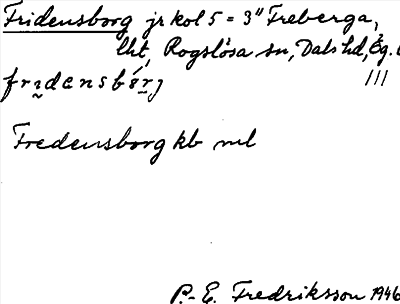 Fridensborg jr kol 5 = 3" Freberga,
lht, Rogslösa sn, Dals hd, Ög. l
frịdensbórj ///
Fredensborg kb ml
P.-E. Fredriksson 1946